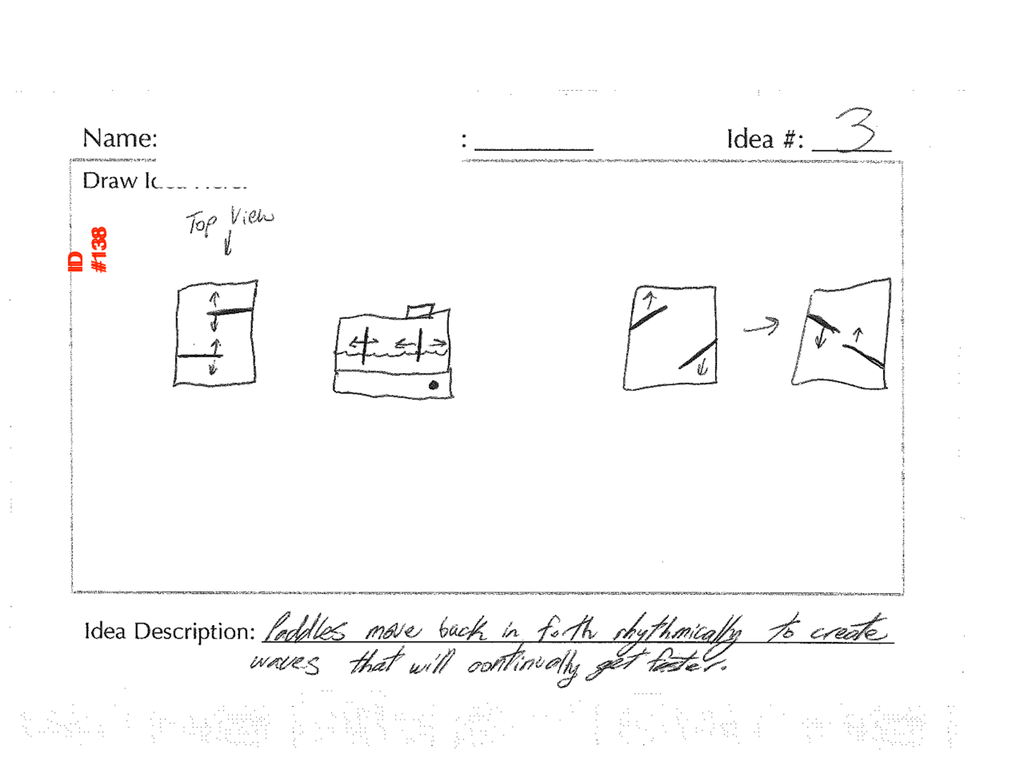 Name: : Idea #: 3
Draw Idea Here:
ID #138
Top View
Idea Description: Paddles move back in forth rhythmically to create
waves that will continually get faster.